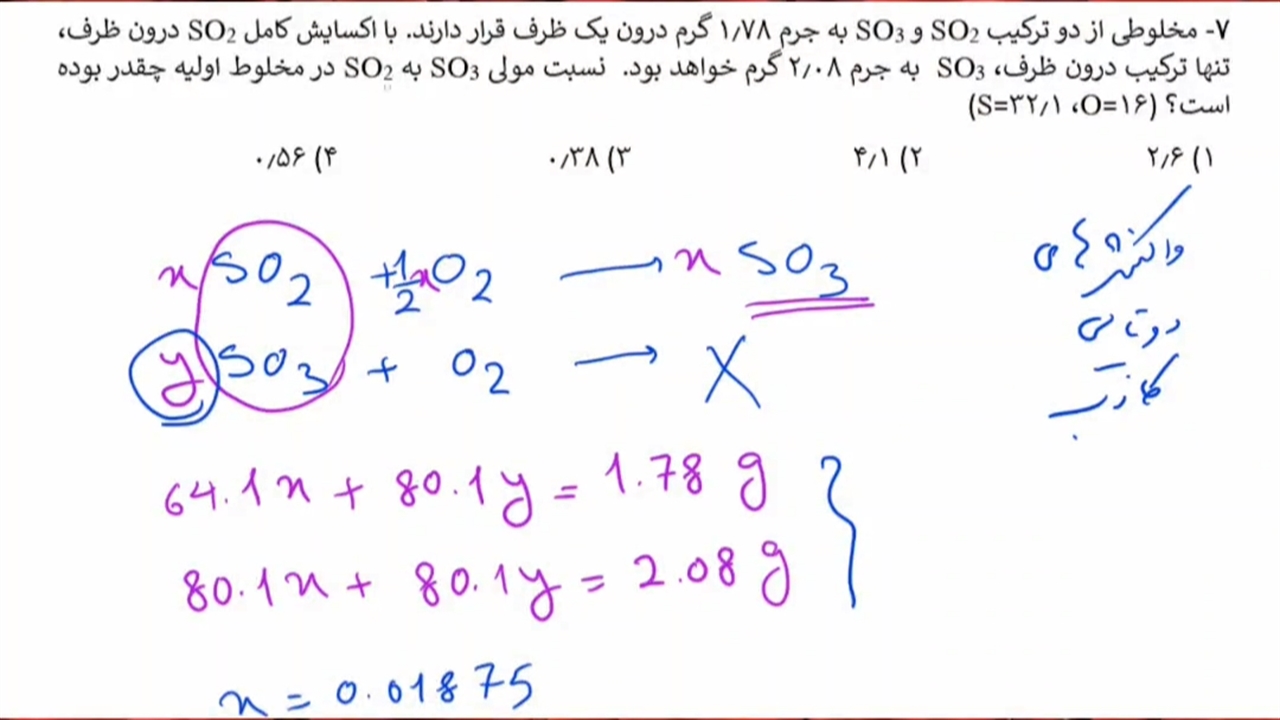 ۷- مخلوطی از دو ترکیب SO2 و SO3 به جرم ۱٫۷۸ گرم درون یک ظرف قرار دارند. با اکسایش کامل SO2 درون ظرف،
تنها ترکیب درون ظرف، SO3 به جرم ۲٫۰۸ گرم خواهد بود. نسبت مولی SO3 به SO2 در مخلوط اولیه چقدر بوده
است؟ (S=۳۲٫۱ ،O=۱۶)
۱) ۲٫۶ ۲) ۴٫۱ ۳) ۰٫۳۸ ۴) ۰٫۵۶
x SO2 + 1/2 x O2 → x SO3
y SO3 + O2 → X
واکنش های
دوتایی
گازی
64.1x + 80.1y = 1.78 g
80.1x + 80.1y = 2.08 g
x = 0.01875